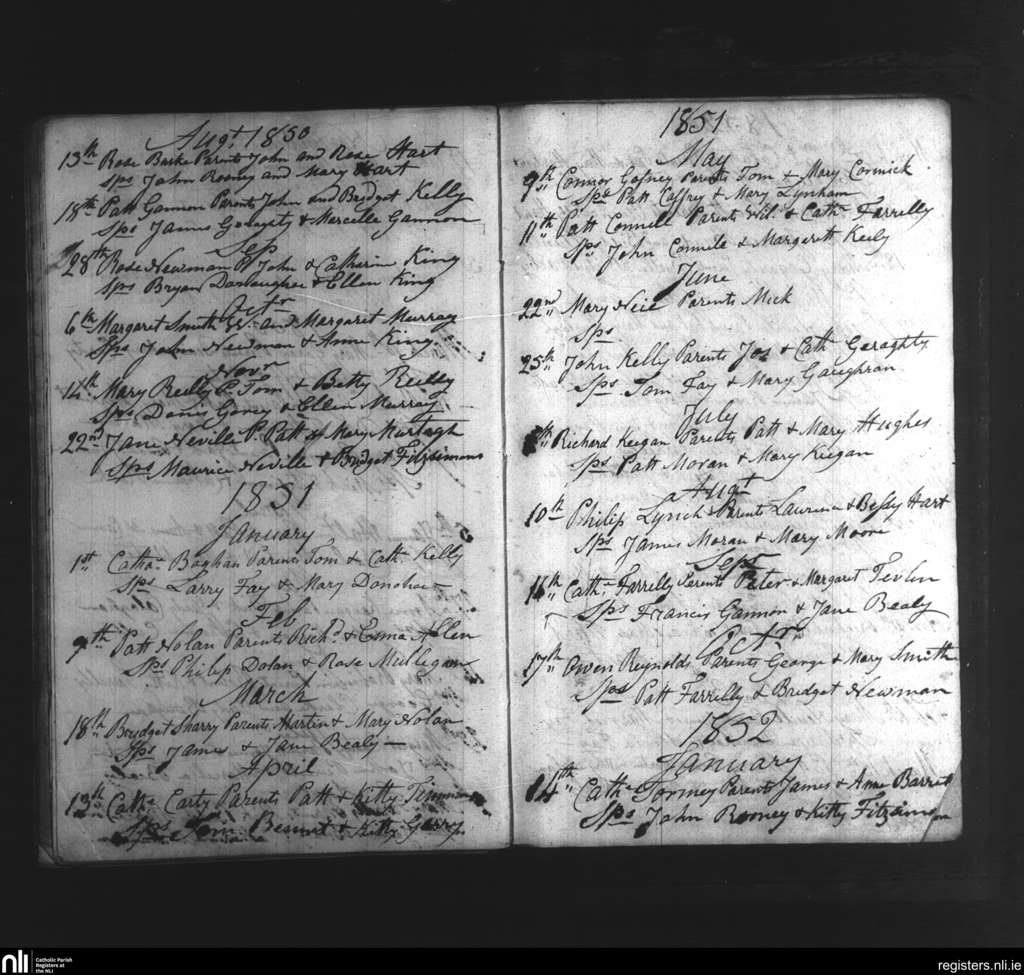 Augt 1850
13th Rose Burke Parents John and Rose Hart
Sps John Rooney and Mary Hart
18th Patt Gannon Parents John and Bridget Kelly
Sps James Geraghty & Marcella Gannon
Sep
28th Rose Newman P John & Catharin King
Sps Bryan Donaughoe & Ellen King
Octr
6th Margaret Smith Wm and Margaret Murray
Sps John Newman & Anne King
Novr
14th Mary Reilly P. Tom & Betty Reilly
Sps Denis Garvey & Ellen Murray
22nd Jane Neville P. Patt & Mary Murtagh
Sps Maurice Neville & Bridget Fitzsimons
1851
January
1st Cathe Baghan Parents Tom & Cath. Kelly
Sps Larry Fay & Mary Donohoe
Feb
9th Patt Nolan Parents Richd & Allen
Sps Philip Dolan & Rose Mulligan
March
18th Bridget Sharry Parents Martin & Mary Nolan
Sps James & Jane Bealy
April
13th Cathe Carty Parents Patt & Kitty
Sps Tom Bennet & Kitty Garry
1851
May
9th Connor Gafney Parents Tom & Mary Cormick
Sps Patt Caffrey & Mary Lynham
11th Patt Connell Parents Wil. & Cathe Farrelly
Sps John Connile & Margarett Keely
June
22nd Mary Neil Parents Mick
Sps
25th John Kelly Parents Jos & Cath Geraghty
Sps Tom Fay & Mary Gaughran
July
Richard Keegan Parents Patt & Mary Hughes
Sps Patt Moran & Mary Keegan
Augt
10th Philip Lynch Parents Laurence & Bessy Hart
Sps James Moran & Mary Moore
Sept
14th Cathe Farrelly Parents Peter & Margaret Tevlin
Sps Francis Gannon & Jane Bealy
Octr
17th Owen Reynolds Parents George & Mary Smith
Sps Patt Farrelly & Bridget Newman
1852
January
14th Cathe Tormey Parents James & Anne Barrett
Sps John Rooney & Kitty Fitzsimon
nli
Catholic Parish
Registers at
the NLI
registers.nli.ie